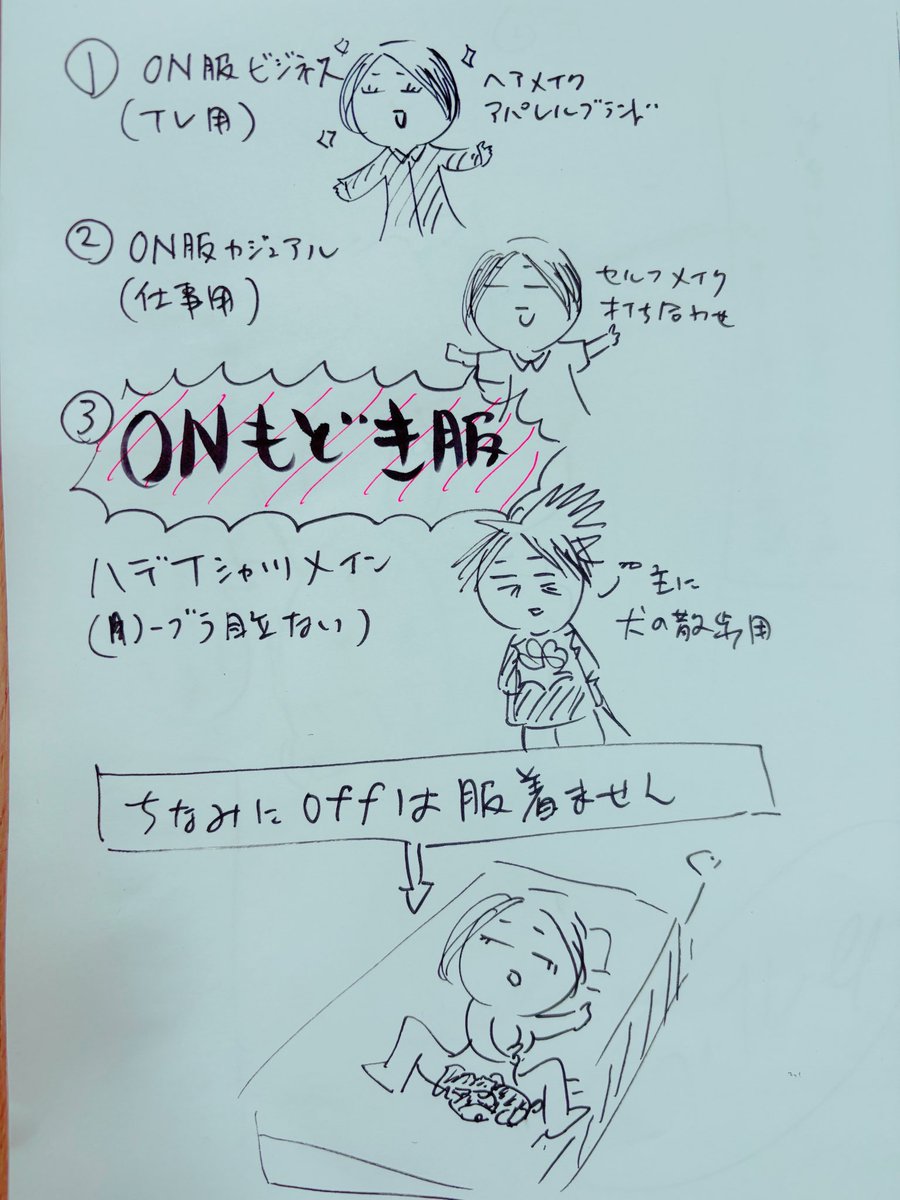 ① ON服ビジネス
(TV用)
ヘアメイク
アパレルブランド
② ON服カジュアル
(仕事用)
セルフメイク
打ち合わせ
③ ONもどき服
ハデTシャツメイン
(ノーブラ目立ない)
主に
犬の散歩用
ちなみにOffは服着ません